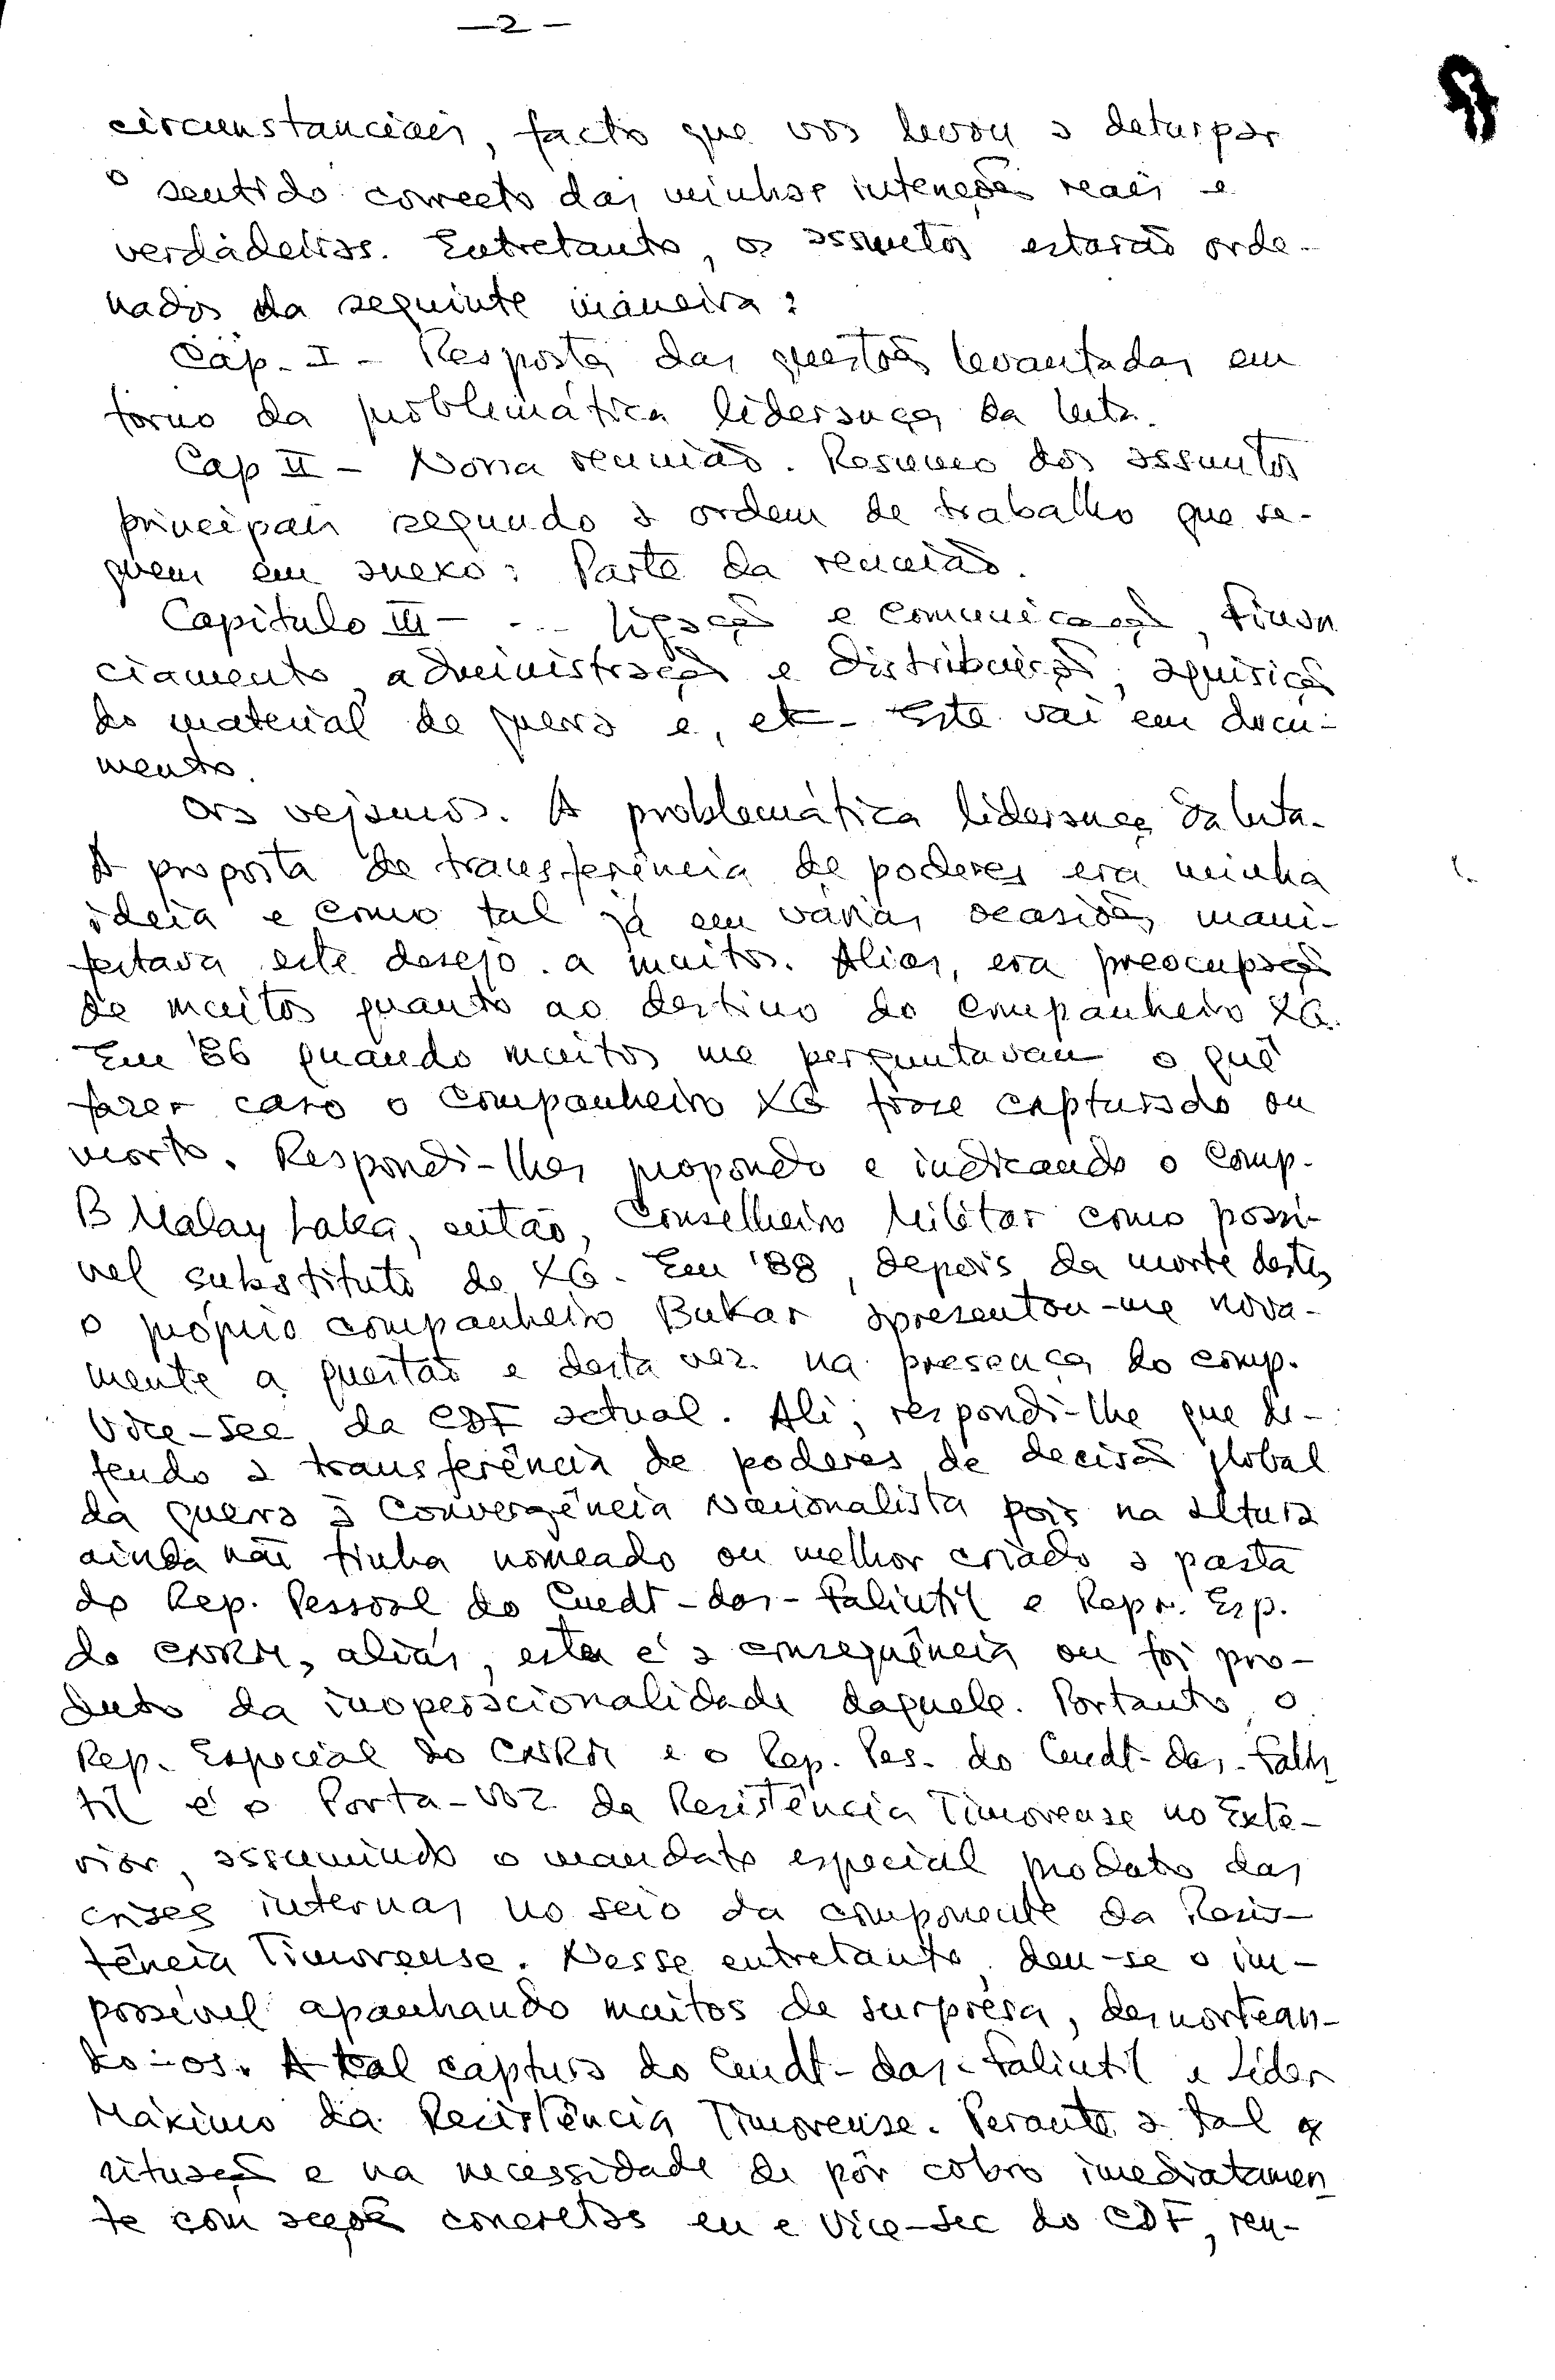 — 2 —
circunstanciais, facto que vos levou a deturpar
o sentido correcto das minhas intenções reais e
verdadeiras. Entretanto, os assuntos estarão orde-
nados da seguinte maneira:
Cap. I - Resposta das questões levantadas em
torno da problemática liderança da luta.
Cap II - Nossa reunião. Resumo dos assuntos
principais segundo a ordem de trabalho que se-
guem em anexo: Parte da reunião.
Capitulo III - ... ligação e comunicação, finan
ciamento, administração e distribuição, aquisição
do material de guerra e, etc. Este vai em docu-
mento.
Ora vejamos. A problemática liderança da luta.
A proposta de transferência de poderes era minha
ideia e como tal já em várias ocasiões mani-
festava este desejo a muitos. Alias, era preocupação
de muitos quanto ao destino do companheiro XG.
Em '86 quando muitos me perguntavam o quê
fazer caso o companheiro XG fosse capturado ou
morto. Respondi-lhes propondo e indicando o comp.
B Malay Laka, então, Conselheiro Militar como possí-
vel substituto de XG. Em '88, depois da morte deste,
o próprio companheiro Bukar apresentou-me nova-
mente a questão e desta vez na presença do comp.
Vice-Sec da CDF actual. Ali, respondi-lhe que de-
fendo a transferência de poderes de decisão global
da guerra à Convergência Nacionalista pois na altura
ainda não tinha nomeado ou melhor criado a pasta
do Rep. Pessoal do Cmdt-das-Falintil e Repr. Esp.
do CNRM, aliás, esta é a consequência ou foi pro-
duto da inoperacionalidade daquele. Portanto, o
Rep. Especial do CNRM e o Rep. Pes. do Cmdt-das-Falin
til é o Porta-voz da Resistência Timorense no Exte-
rior, assumindo o mandato especial produto das
crises internas no seio da componente da Resis-
tência Timorense. Nesse entretanto, deu-se o im-
possível apanhando muitos de surprêsa, desnortean-
do-os. A tal captura do Cmdt-das-Falintil e Líder
Máximo da Resistência Timorense. Perante a tal
situação e na necessidade de pôr cobro imediatamen
te com acções concretas eu e Vice-Sec do CDF, reu-